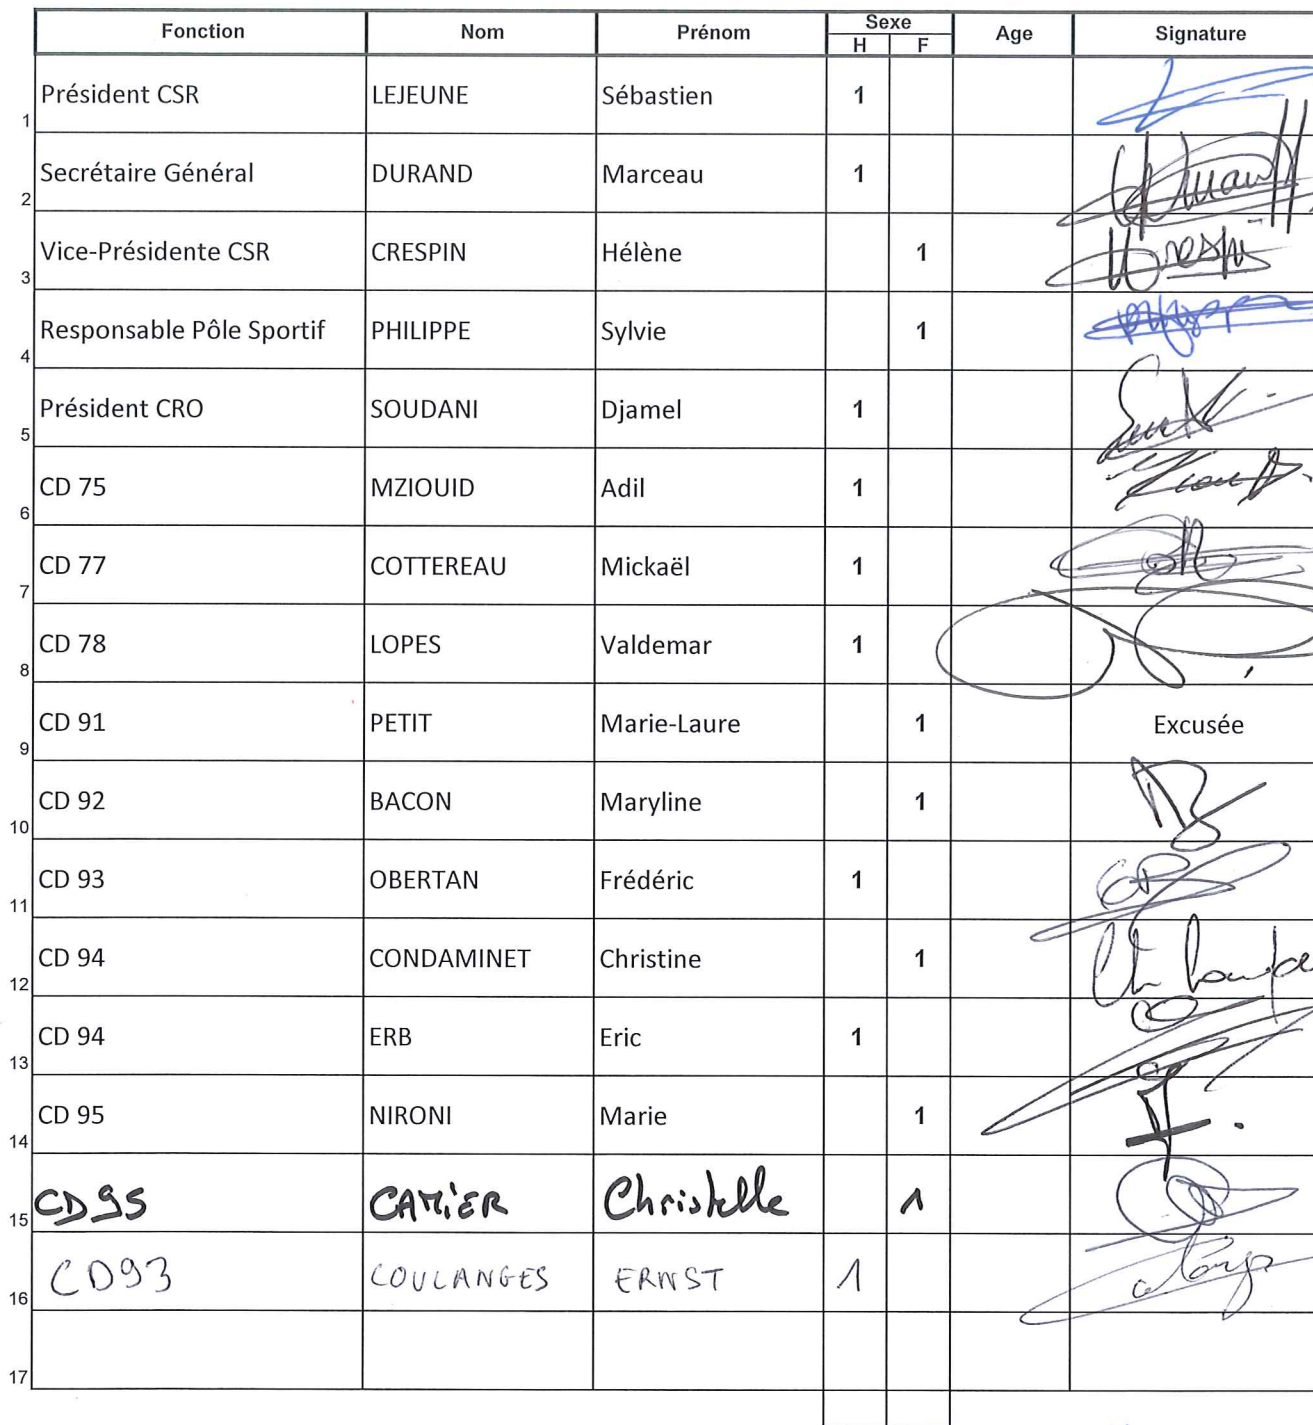 Fonction Nom Prénom Sexe Age Signature
H F
1 Président CSR LEJEUNE Sébastien 1
2 Secrétaire Général DURAND Marceau 1
3 Vice-Présidente CSR CRESPIN Hélène 1
4 Responsable Pôle Sportif PHILIPPE Sylvie 1
5 Président CRO SOUDANI Djamel 1
6 CD 75 MZIOUID Adil 1
7 CD 77 COTTEREAU Mickaël 1
8 CD 78 LOPES Valdemar 1
9 CD 91 PETIT Marie-Laure 1 Excusée
10 CD 92 BACON Maryline 1
11 CD 93 OBERTAN Frédéric 1
12 CD 94 CONDAMINET Christine 1
13 CD 94 ERB Eric 1
14 CD 95 NIRONI Marie 1
15 CD95 CAMiER Christelle 1
16 CD93 COULANGES ERNST 1
17